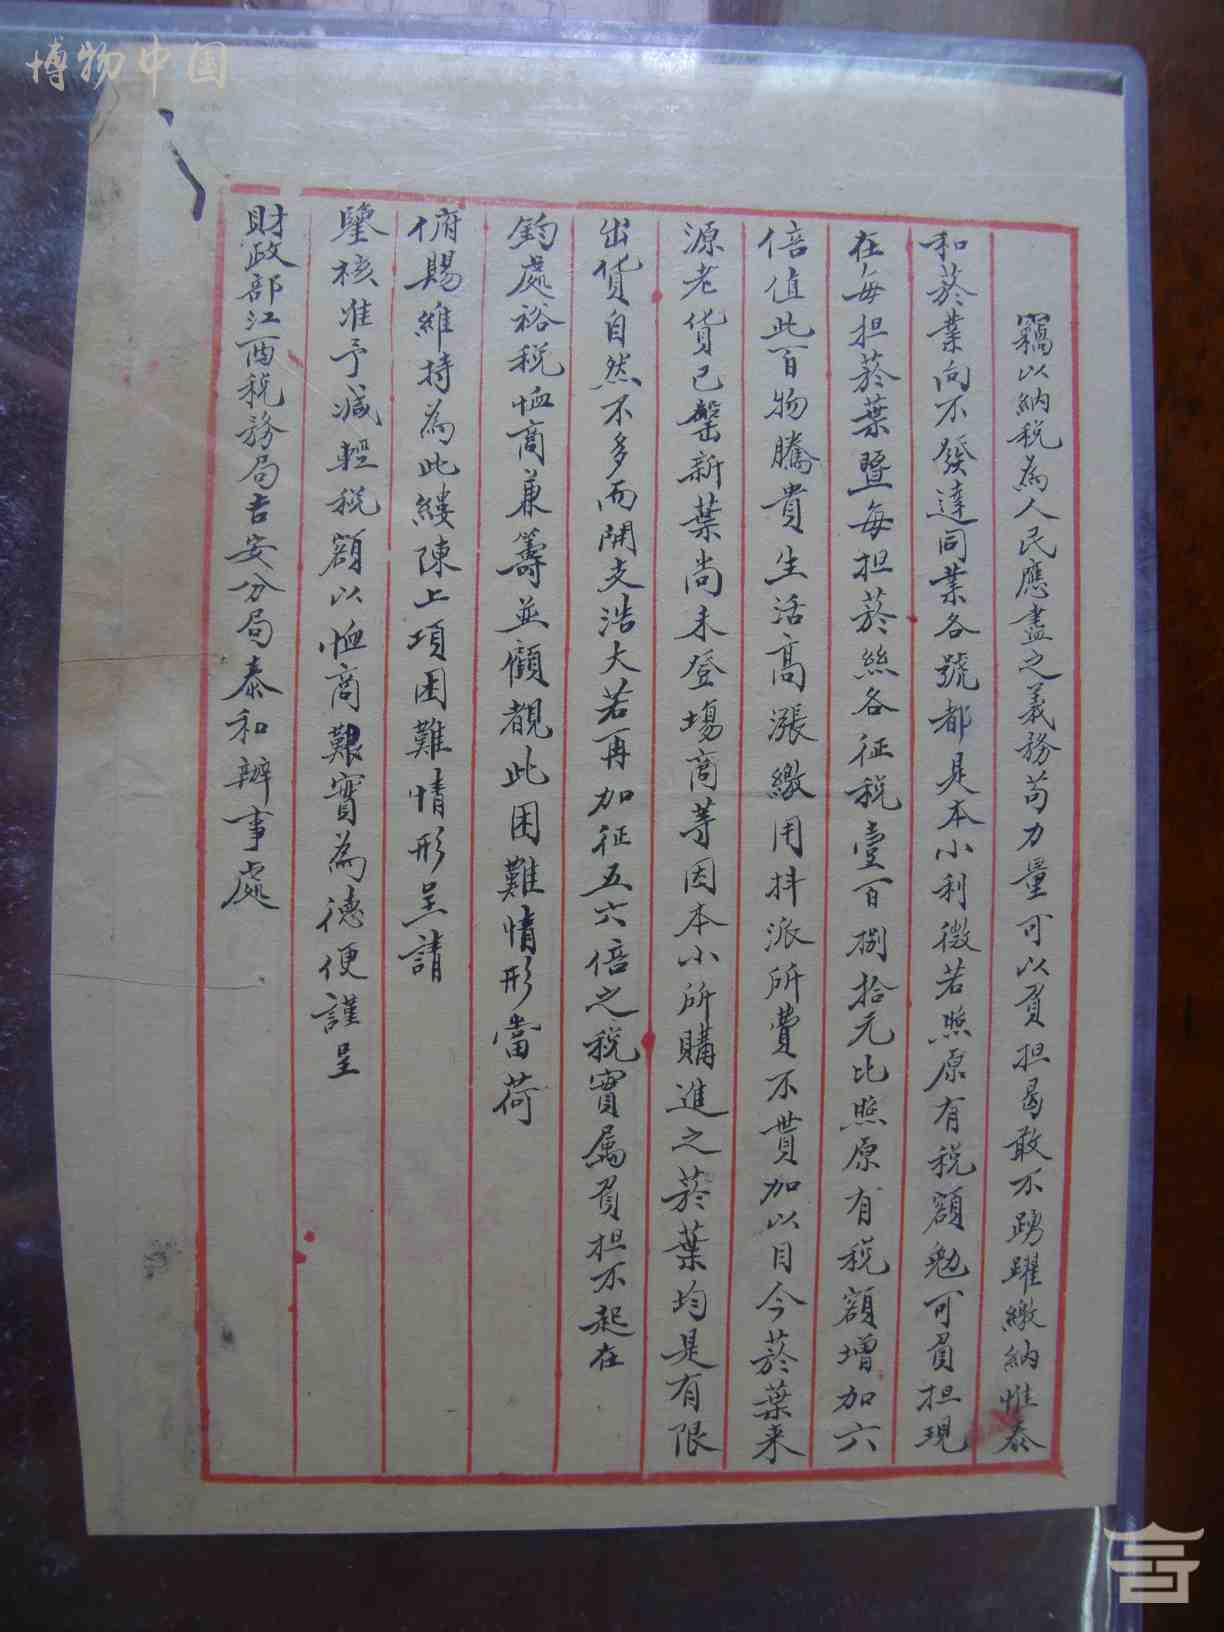 博物中国
竊以納税為人民應盡之義務苟力量可以負担曷敢不踴躍繳納惟泰
和菸業向不發達同業各號都是本小利微若照原有税額勉可負担現
在每担菸葉暨每担菸絲各征税壹百捌拾元比照原有税額增加六
倍值此百物騰貴生活高漲繳用抖派所費不貲加以目今菸葉来
源老貨已罄新葉尚未登塲商等因本小所購進之菸葉均是有限
出貨自然不多而開支浩大若再加征五六倍之税實属負担不起在
鈞處裕税恤商兼籌並顧覩此困難情形當荷
俯賜維持為此縷陳上項困難情形呈請
鑒核准予減輕税額以恤商艱實為德便謹呈
財政部江西税務局吉安分局泰和辦事處